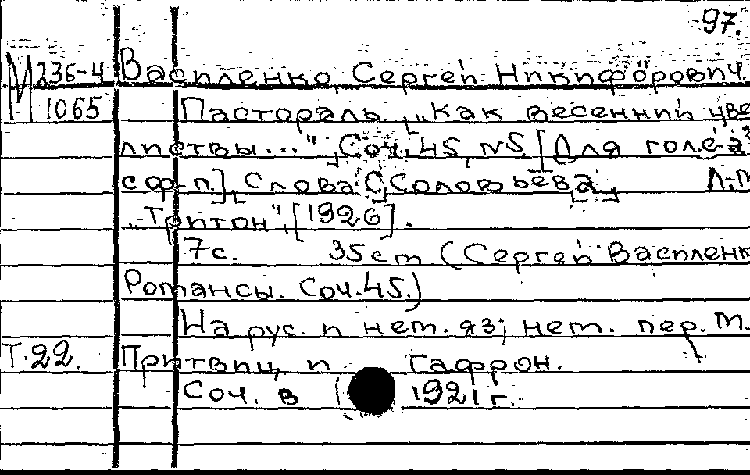 97.
М 236-4 Василенко, Сергей Никифорович.
1065 Пастораль „Как весенний цве
листвы..." Соч. 45, №5 [Для голоса
с ф-п.], Слова С. Соловьева, Л.-М
„Тритон", [1926].
7с. 35см. (Сергей Василенк
Романсы. Соч. 45.)
На рус. и нем. яз; нем. пер. М.
Т.22. Притвиц и Гафрон.
Соч. в 1921г.